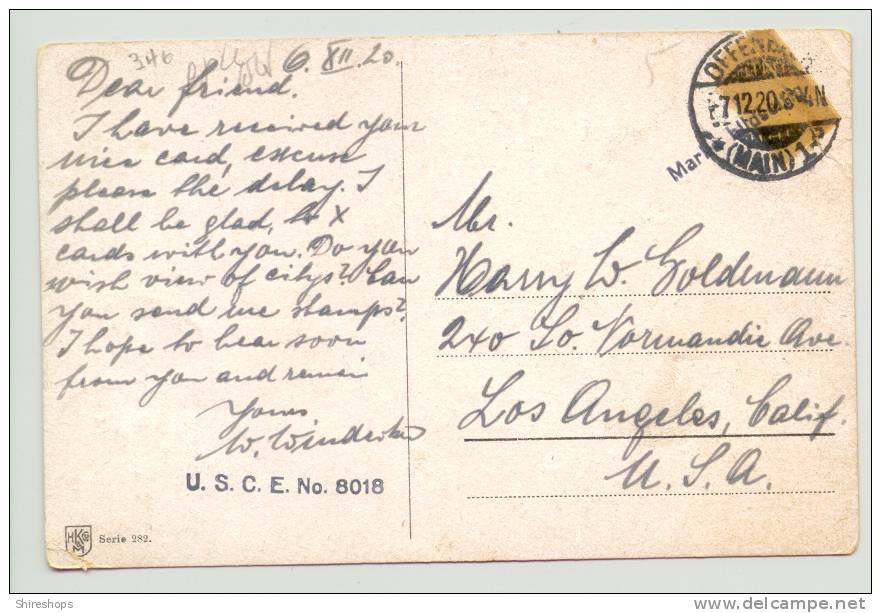 346
6. XII. 20.
Dear friend.
I have received your
nice card, excuse
please the delay. I
shall be glad, to X
cards with you. Do you
wish view of citys? Can
you send me stamps?
I hope to hear soon
from you and remain
Yours
W.
U. S. C. E. No. 8018
HK&Co
M
Serie 282.
5
7.12.20
(MAIN) 1
Mr.
Harry W. Goldemann
240 So. Normandie Ave.
Los Angeles, Calif.
U. S. A.
Shireshops
delcampe.net